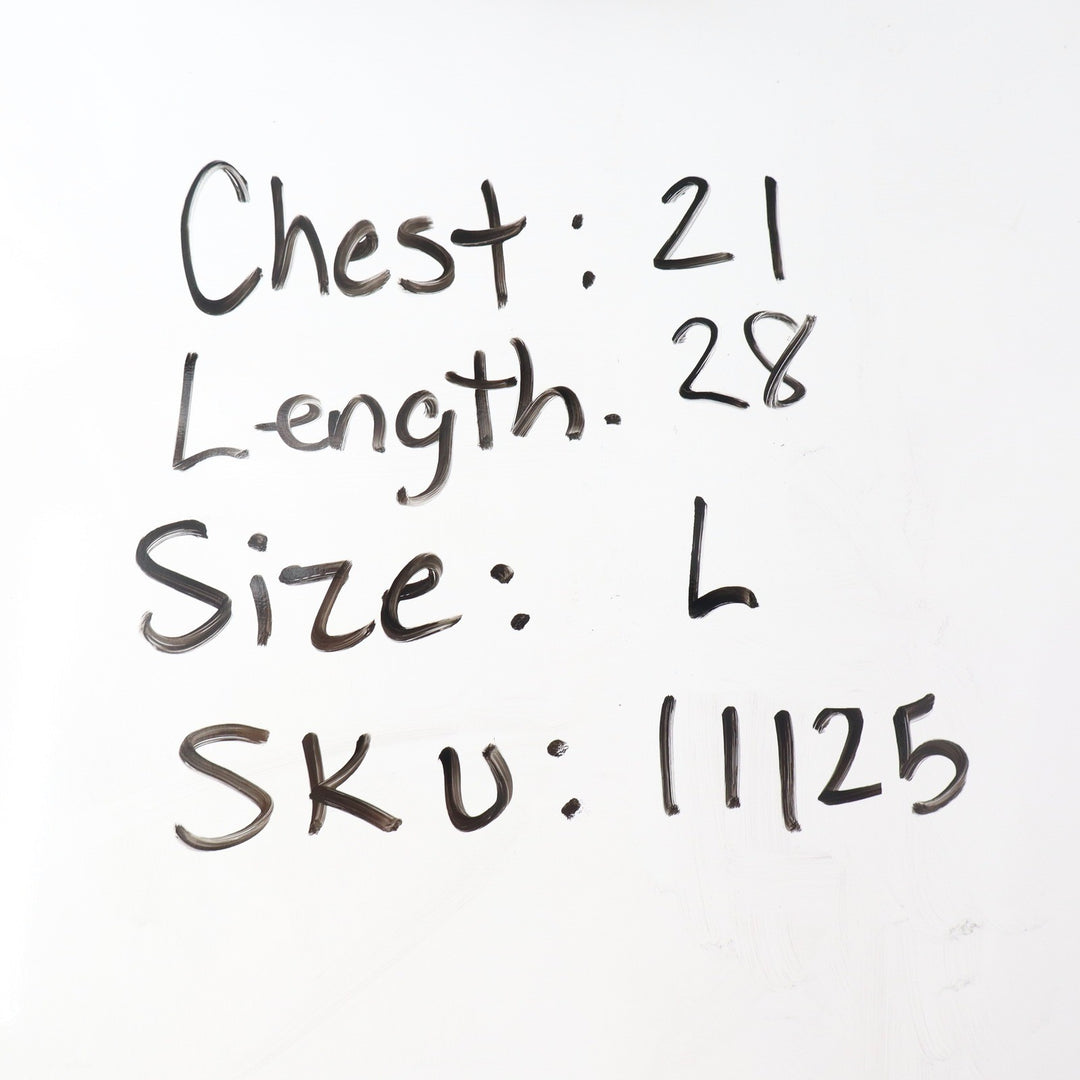 Chest: 21
Length. 28
Size: L
SKU: 11125